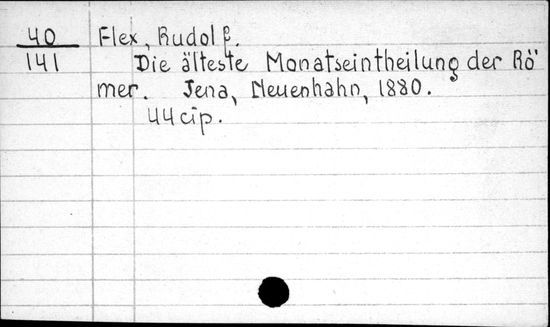 40 Flex, Rudolf.
141 Die älteste Monatseintheilung der Rö
mer. Jena, Neuenhahn, 1880.
44 cтр.